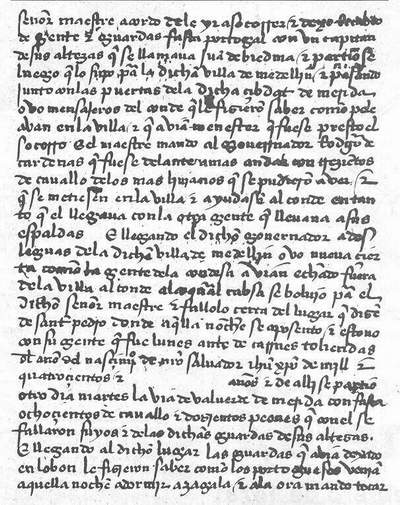 señor maestre acordo de le yr a socorrer / e dexo recabdo
de gente e guardas fasta portogal con un capitan
de sus altezas que se llamava juan de biedma / e partiose
luego que lo supo para la dicha villa de medellin / e pasando
junto con las puertas de la dicha cibdat de merida
ovo mensajeros del conde que le fizieron saber como pele
avan en la villa / e que avia menester que fuese presto el
socorro E el maestre mando al governador Rodrigo de
cardenas que fuese delante con
de cavallo de los mas livianos que se pudiesen aver / e
que se metiesen en la villa e ayudase al conde en tan
to que el llegava con la otra gente que llevava a sus
espaldas E llegando el dicho governador a dos
leguas de la dicha villa de medellin ovo nueva cier
ta como la gente de la condesa avian echado fuera
de la villa al conde a la qual cabsa se bolvio para el
dicho señor maestre e fallolo cerca del lugar que dizen
de sant pedro donde aquella noche se aposento e estovo
con su gente que fue lunes ante de carnes tolliendas
del año del nascimiento de nuestro salvador ihu xpo de mill e
quatrocientos e años e de alli se partio
otro dia martes la via de valverde de merida con fasta
ochocientos de cavallo e dozientos peones que con el se
fallaron suyos e de las dichas guardas de sus altezas.
E llegando al dicho lugar las guardas que avia dexado
en lobon le fizieron saber como los portogueses venian
aquella noche a dormir a zagala / e a la ora mando tocar